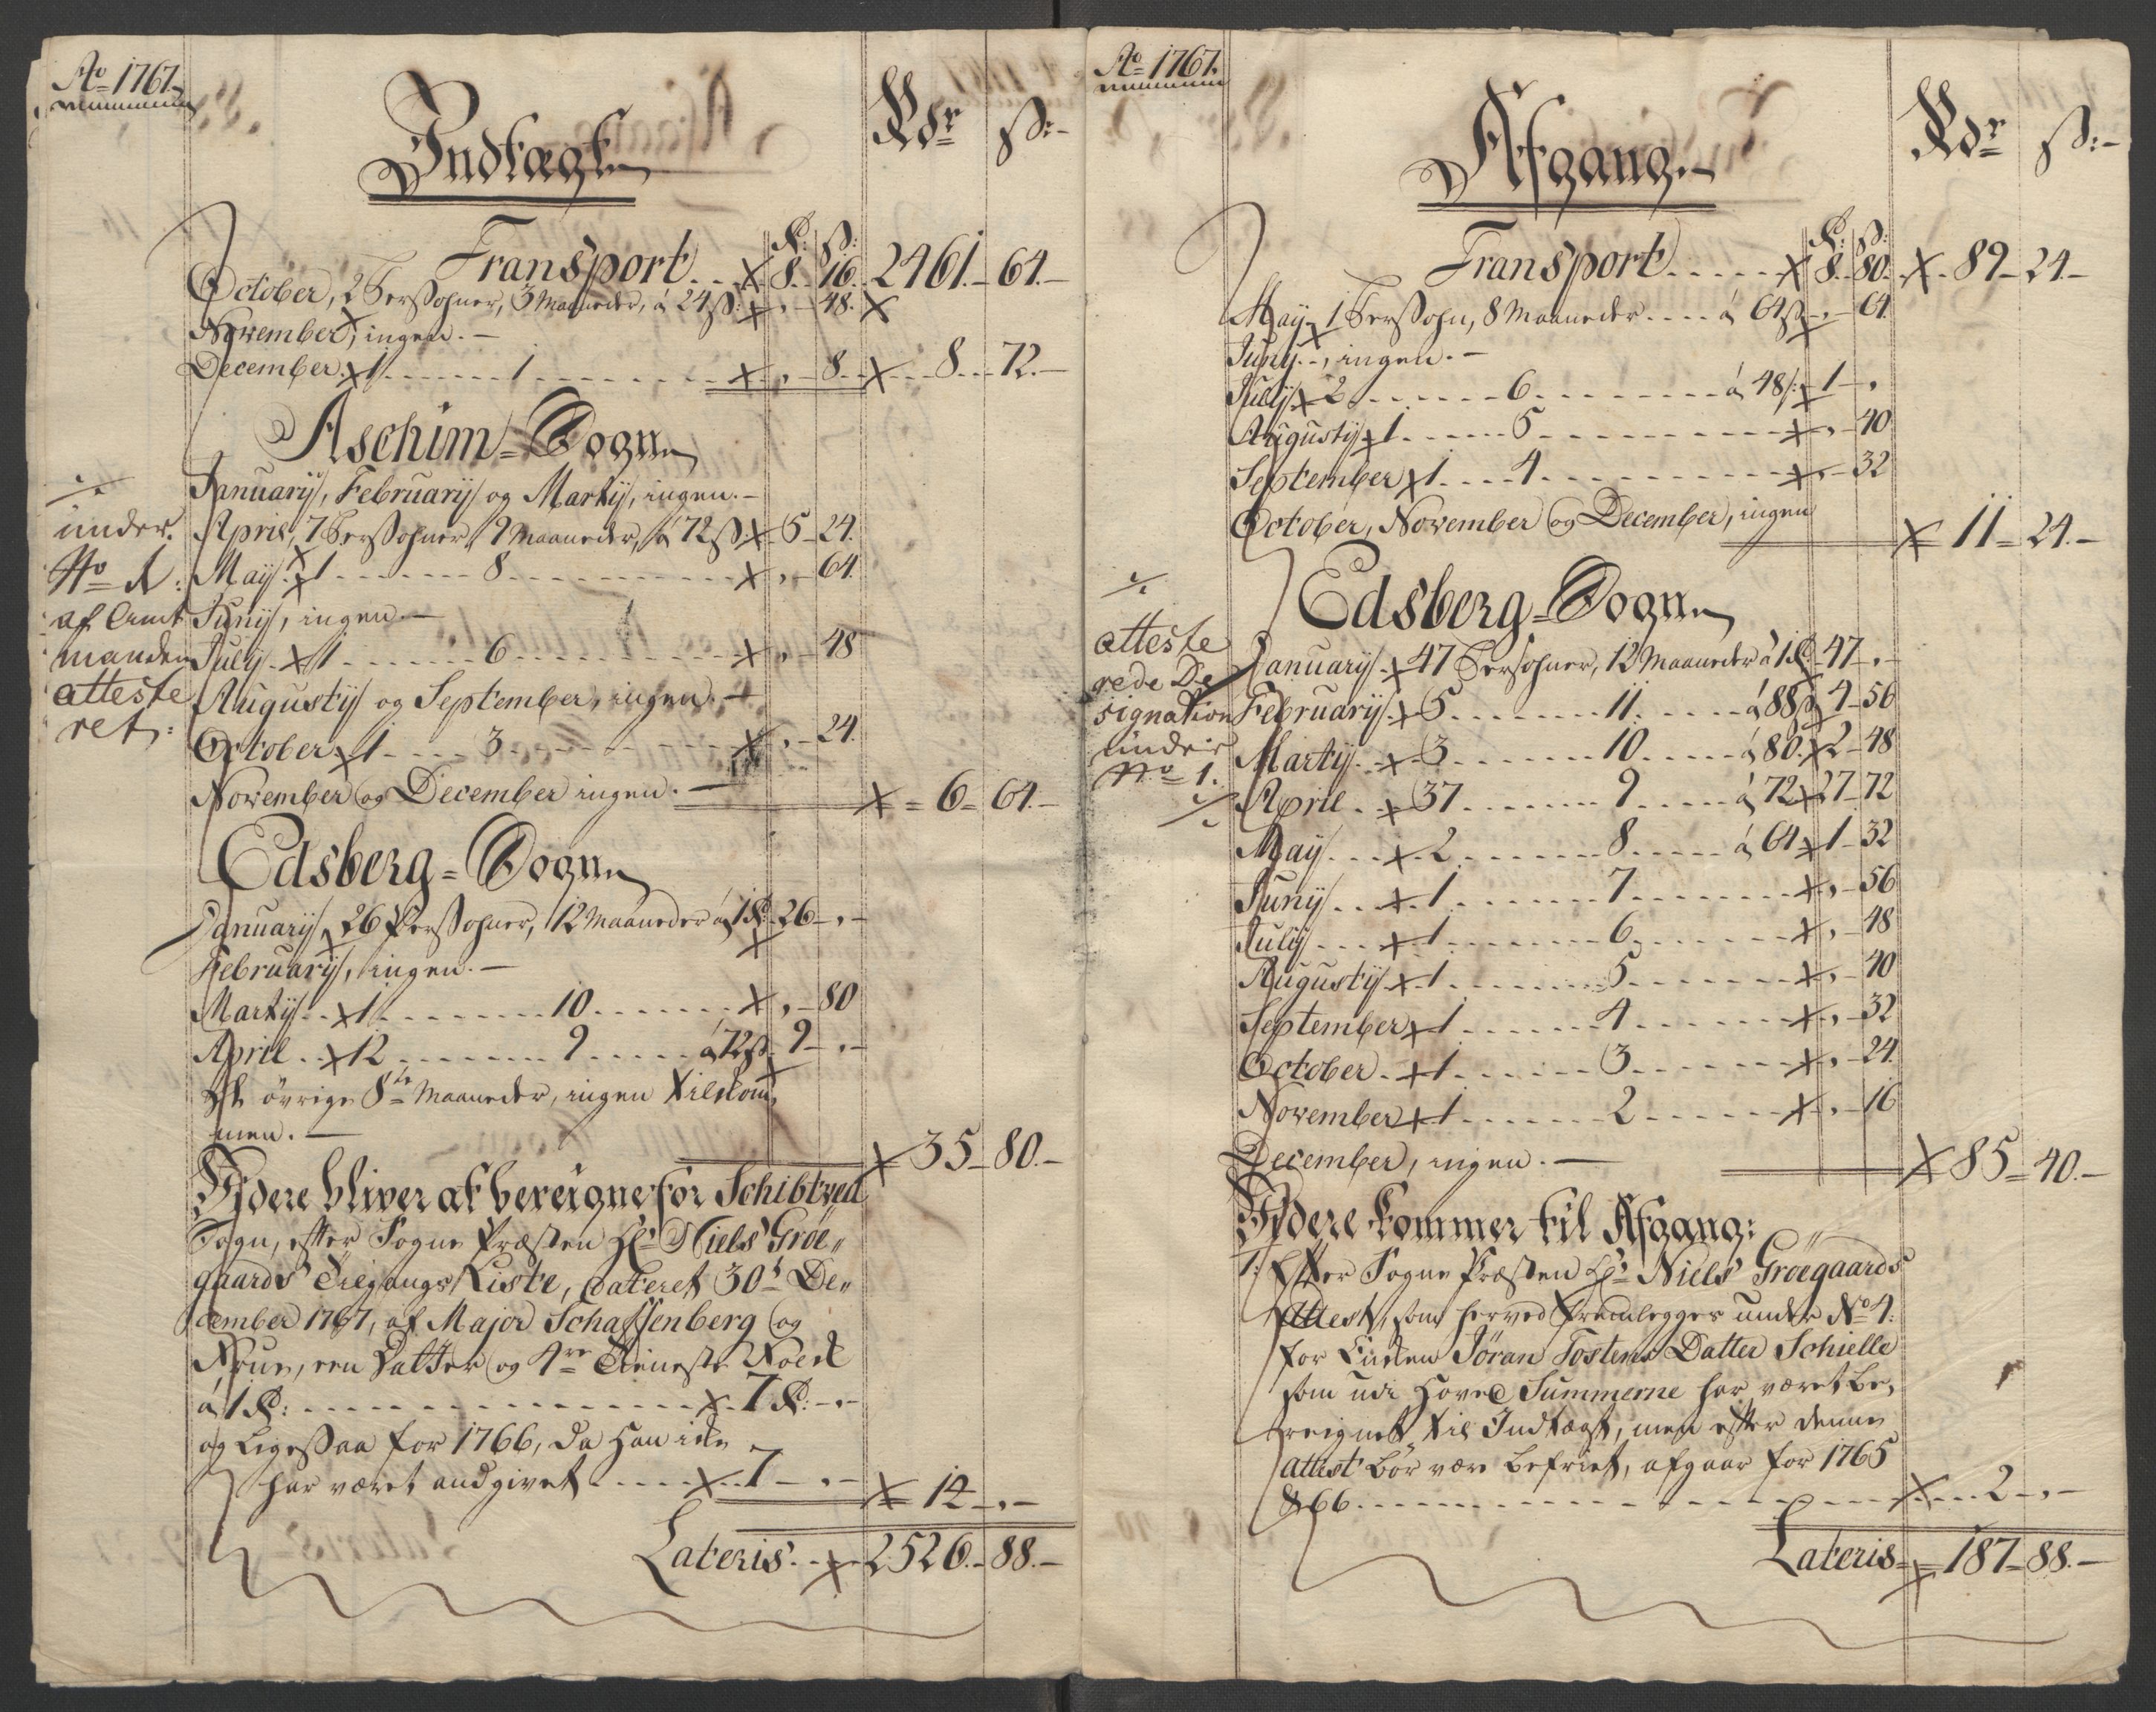 Ao 1767.
Indtægt.
Rdr ß:
R: ß:
Transport . . x 8. 16. 2461. 64.
October, 2 Persohner, 3 Maaneder, á 24 ß: x , 48. x
November, ingen. —
December. x 1 . . . . . . 1 . . . . . . x , 8 . . x 8 . . 72. —
Aschim = Sogn
Januarij, Februarij og Martij, ingen. —
April, 7 Persohner, 9 Maaneder, á 72 ß x 5 - 24.
Maij. x 1 . . . . . . 8 . . . . . . x , - 64.
Junij, ingen. —
Julij. x 1 . . . . . . 6 . . . . . . x , - 48
Augustij og September, ingen. —
October x 1 . . . . 3 . . . . . . x , - 24.
November og December ingen. — x = 6 = 64. —
./.
under.
No 1:
af Amt
manden
atteste
ret:
Edsberg = Sogn
Januarij, x 26 Persohner, 12 Maaneder á 1 R: 26 - , -
Februarij, ingen. —
Martij . . x 1 . . . . . . 10 . . . . . . x , - 80
April . . x 12 . . . . . . 9 . . . . . á 72 ß. 9 - , -
De övrige 8te Maaneder, ingen tilkom,
men. — x = 35 - 80. —
Videre bliver at bereigne for Schibtved
Sogn, efter Sogne Præsten Hr Niels Gröe„
gaards Tilgangs Liste, dateret 30t De„
cember 1767, af Major Schaffenberg og
Frue, een Datter og 4re Tieneste Folk
á 1 R: . . . . . . . . . . x . 7 R: - , -
og Ligessaa for 1766, da Han icke
har været andgivet . . . . x . . 7 - , - x = 14 - , -
Lateris . . x 2526. - 88. —
Ao 1767.
Afgang.
Rdr ß:
R: ß:
Transport . . . . . x 8. 80. x . 89 - 24. -
Maij x 1 Persohn, 8 Maaneder . . . . á 64 ß - , - 64.
Junij. -, ingen. —
Julij x 2 . . . . . . 6 . . . . . . á 48 ß: x 1 - ,
Augustij x 1 . . . . . 5 . . . . . . x , - 40
September x 1 . . . . 4 . . . . . . x , - 32
October, November og December, ingen x 11 = 24. -
Edsberg = Sogn
./.
atteste
rede De
signation
under
No 1.
./.
Januarij . x 47 Persohner, 12 Maaneder á 1 R. 47 - , -
Februarij . x 5 . . . . . . 11. . . . . . á 88 ß 4 - 56
Martij . . x 3 . . . . . . 10 . . . . . á 80. x 2 - 48
April . . x 37 . . . . . . 9 . . . . . á 72 x 27 - 72
Maij . . . x . 2 . . . . . . 8 . . . . . á 64 x 1 - 32
Junij . . . x . 1 . . . . . . 7 . . . . . . x , - 56
Julij . . . . x 1 . . . . . . 6 . . . . . . x , - 48
Augustij x . 1 . . . . . . 5 . . . . . . x , - 40
September x 1 . . . . . . 4 . . . . . . x , - 32
October . . x 1 . . . . . . 3 . . . . . . x , - 24.
November x 1 . . . . . . 2 . . . . . . x , - 16
December, ingen. — x 85 = 40. -
Videre kommer til Afgang:
1. Efter Sogne Præsten Hr Niels Gröegaards
Attest, som herved fremlegges under No 4.
for Enken Jöran Tostens Datter Schielle
som udi Hoved Summerne har været be,
reignet til Indtægt, men efter denne
Attest bör være befriet, afgaar for 1765
& 66 . . . . . . . . . . x . . . 2 - , -
Lateris = x = 187 = 88. —